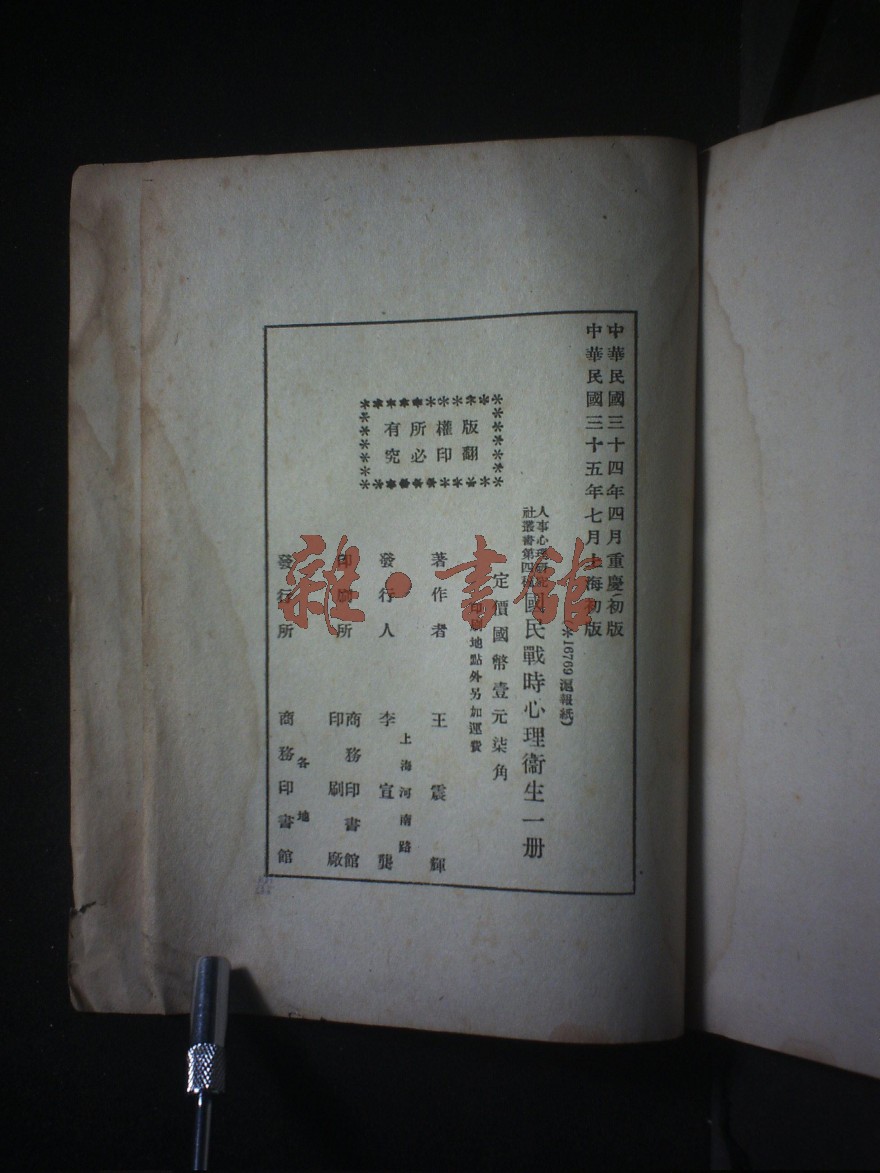 中華民國三十四年四月重慶初版
中華民國三十五年七月上海初版
(*16769 滬報紙)
人事心理研究
社叢書第四種
國民戰時心理衞生一册
定價國幣壹元柒角
印刷地點外另加運費
版權所有
翻印必究
著作者 王震輝
上海河南路
發行人 李宣龔
印刷所 商務印書館
印刷廠
各地
發行所 商務印書館
雜·書館